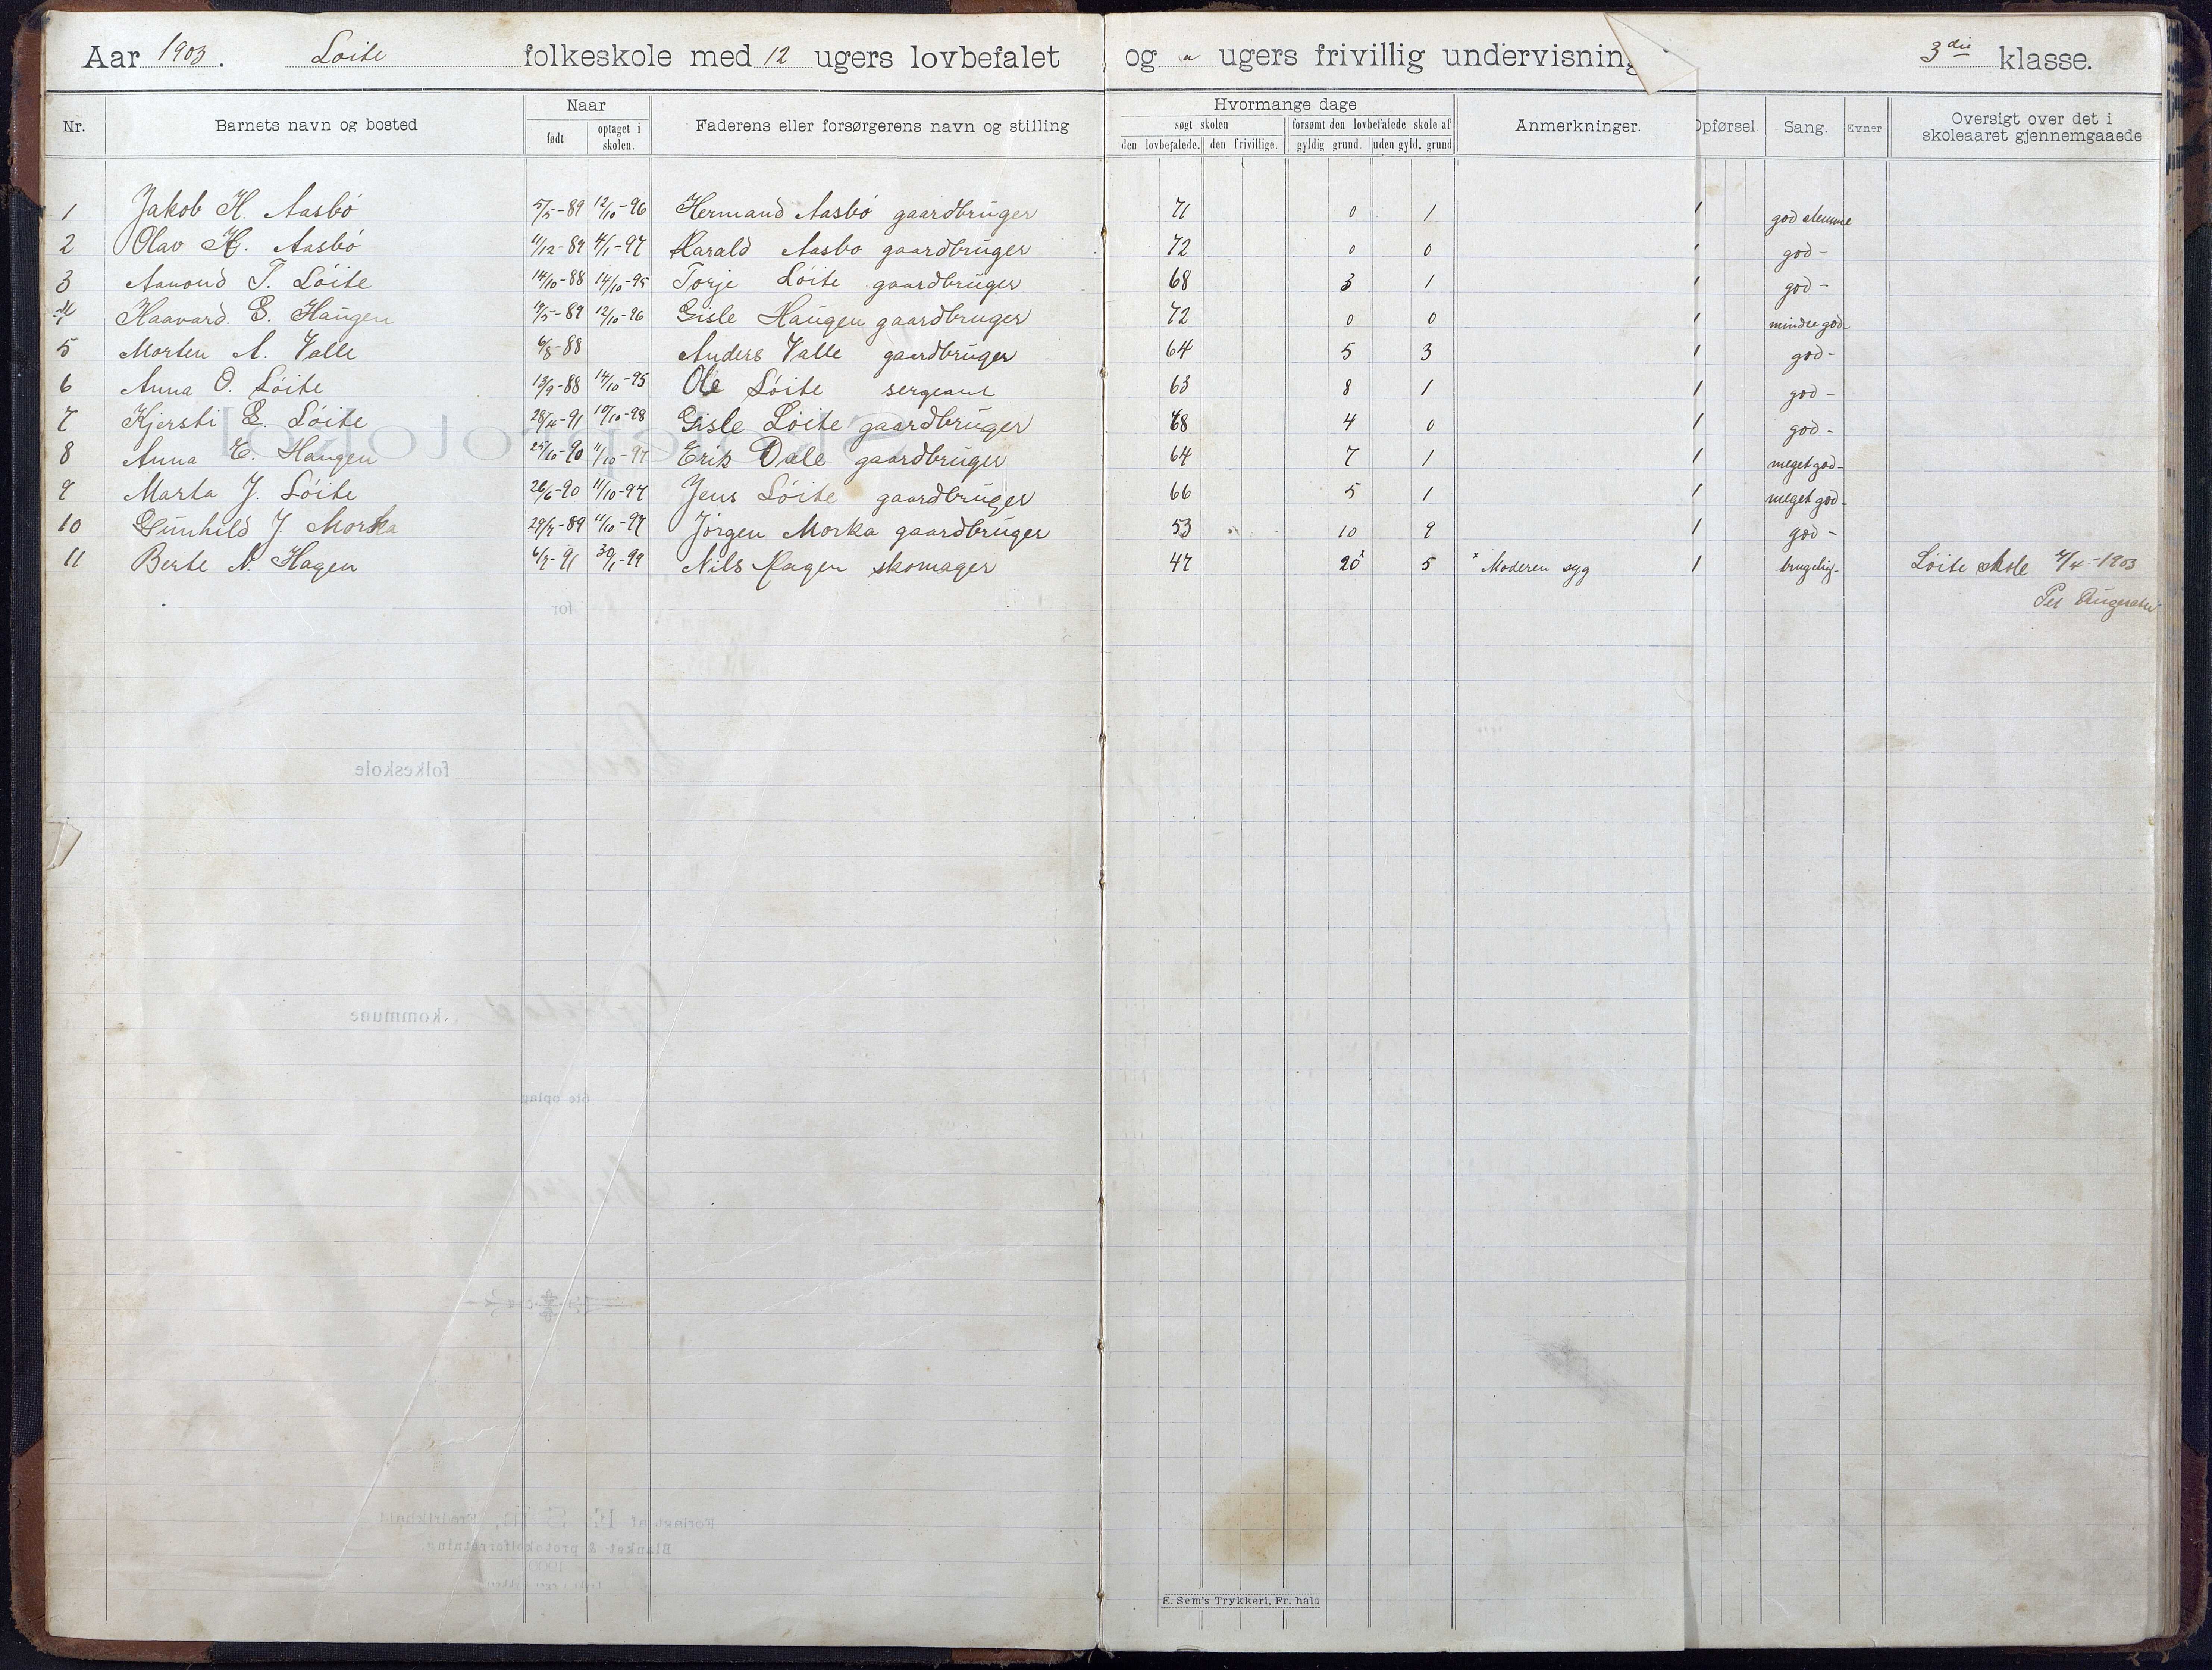 Aar 1903. Løite folkeskole med 12 ugers lovbefalet og " ugers frivillig undervisning 3die klasse.
Nr. Barnets navn og bosted Naar født optaget i skolen. Faderens eller forsørgerens navn og stilling Hvormange dage søgt skolen den lovbefalede. den frivillige. forsømt den lovbefalede skole af gyldig grund. uden gyld. grund Anmerkninger. Opførsel Sang. Evner Oversigt over det i skoleaaret gjennemgaaede
1 Jakob H. Aasbø 5/5-89 12/10-96 Hermand Aasbø gaardbruger 71 0 1 1 god stemme
2 Olav H. Aasbø 11/12-89 4/1-97 Harald Aasbo gaardbruger 72 0 0 1 god -
3 Aanond T. Løite 14/10-88 14/10-95 Torje Løite gaardbruger 68 3 1 1 god -
4 Haavard. G. Haugen 19/5-89 12/10-96 Gisle Haugen gaardbruger 72 0 0 1 mindre god -
5 Morten A. Valle 6/8-88 Anders Valle gaardbruger 64 5 3 1 god -
6 Anna O. Løite 13/9-88 14/10-95 Ole Løite sergeant 63 8 1 1 god -
7 Kjersti G. Løite 28/4-91 10/10-98 Gisle Løite gaardbruger 68 4 0 1 god -
8 Anna E. Haugen 25/10-90 11/10-97 Erik Dale gaardbruger 64 7 1 1 meget god -
9 Marta J. Løite 26/6-90 11/10-97 Jens Løite gaardbruger 66 5 1 1 meget god -
10 Gunhild J. Morka 29/7-89 11/10-97 Jørgen Morka gaardbruger 53 10 9 1 god -
11 Berte N. Hagen 6/7-91 30/1-99 Nils Hagen skomager 47 20x 5 x Moderen syg 1 brugelig - Løite skole 4/4-1903
Per
E. Sem's Trykkeri, Fr. hald